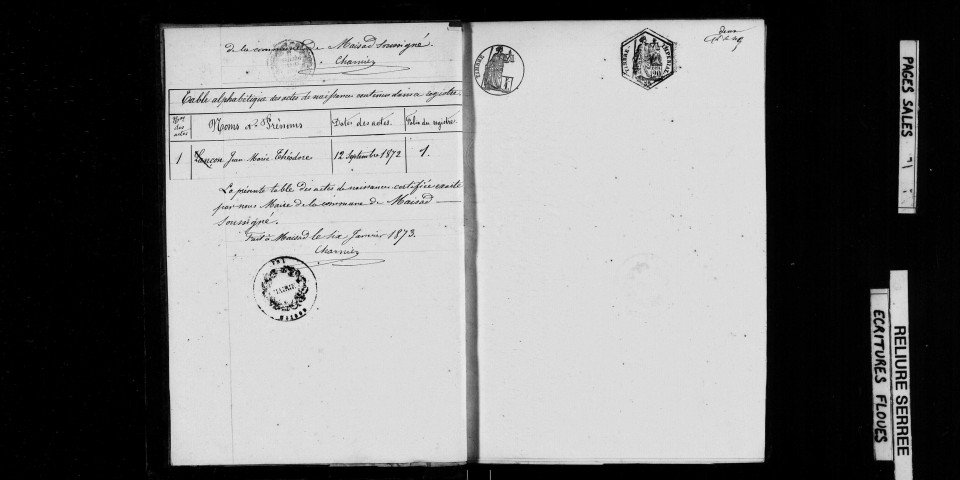 de la commune de Maisad soussigné.
Charrier
Table alphabétique des actes de naissances contenus dans ce registre
Nos des actes
Noms et Prénoms
Dates des actes.
Folios du registre.
1
Lançon Jean Marie Théodore
12 Septembre 1872
1.
La présente table des actes de naissances certifiée exacte
par nous Maire de la commune de Maisad
soussigné.
Fait à Maisad le six Janvier 1873.
Charrier
TIMBRE
TIMBRE IMPERIAL
deux
PAGES SALES
RELIURE SERREE
ECRITURES FLOUES